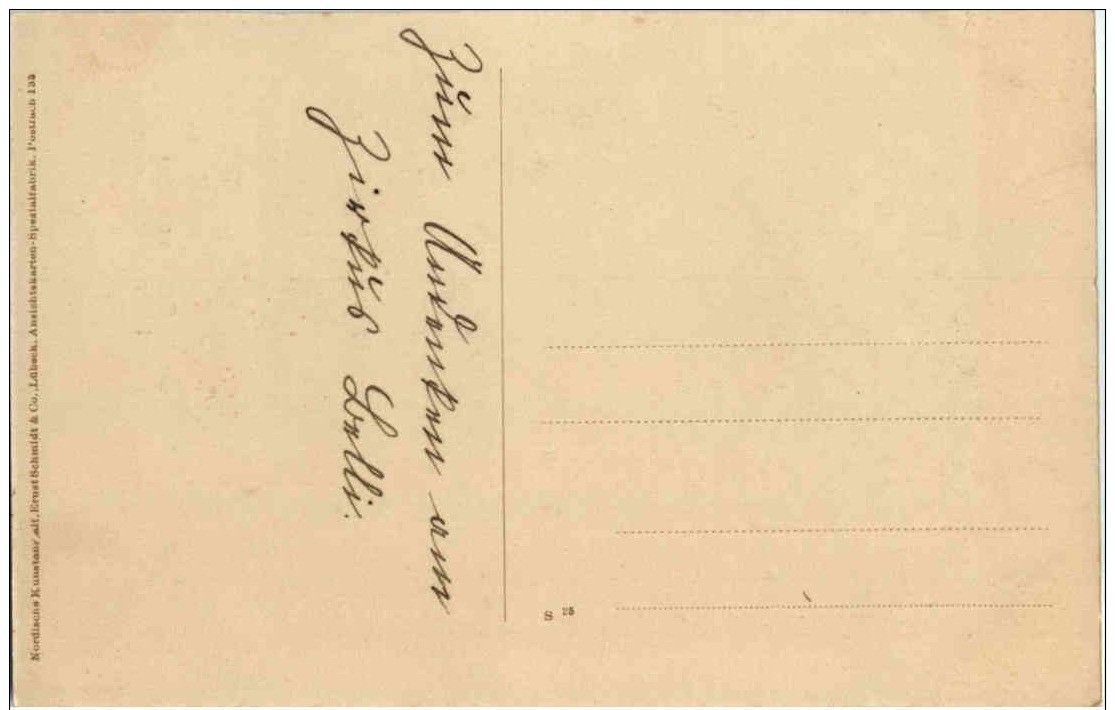 Zum Andenken am
Zirkus Lolli.
Nordische Kunstanstalt, Ernst Schmidt & Co., Lübeck, Ansichtskarten-Spezialfabrik, Postfach 133
S 25